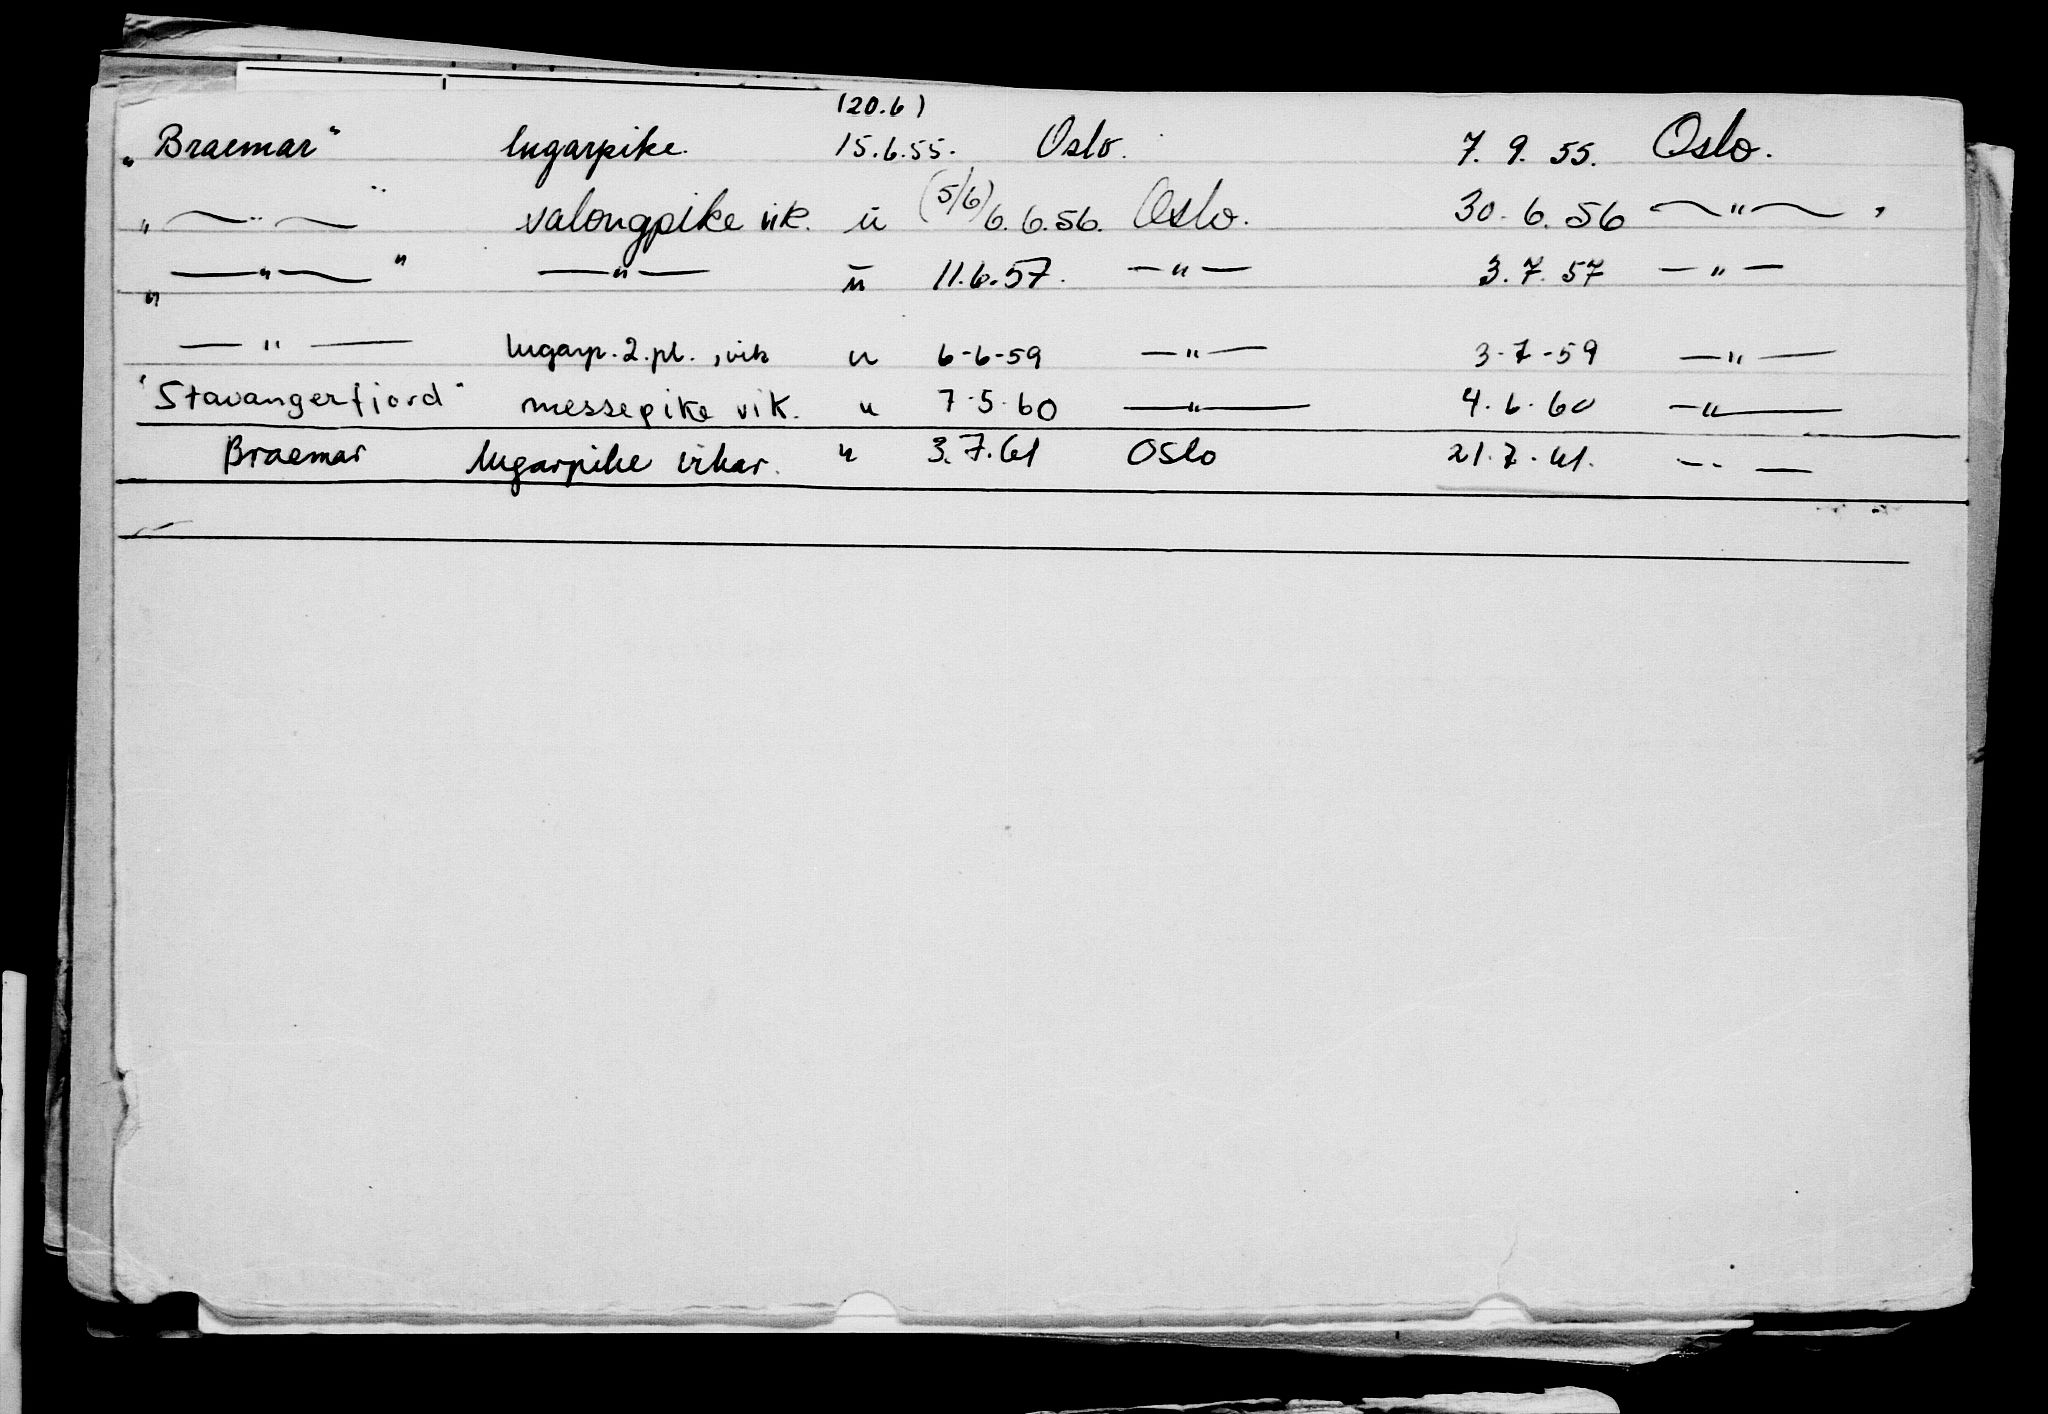 (20.6)
„Braemar" lugarpike. 15.6.55. Oslo. 7. 9. 55. Oslo.
„ — " — " salongpike vik. u (5/6) 6.6.56. Oslo. 30. 6. 56 — " —
„ — " — " — " — u 11.6.57. — " — 3. 7. 57 — " —
— " — lugarp. 2. pl., vik u 6-6-59 — " — 3-7-59 — " —
"Stavangerfjord" messepike vik. u 7.5.60 — " — 4.6.60 — " —
Braemar lugarpike vikar. u 3.7.61 Oslo 21.7.61. — " —